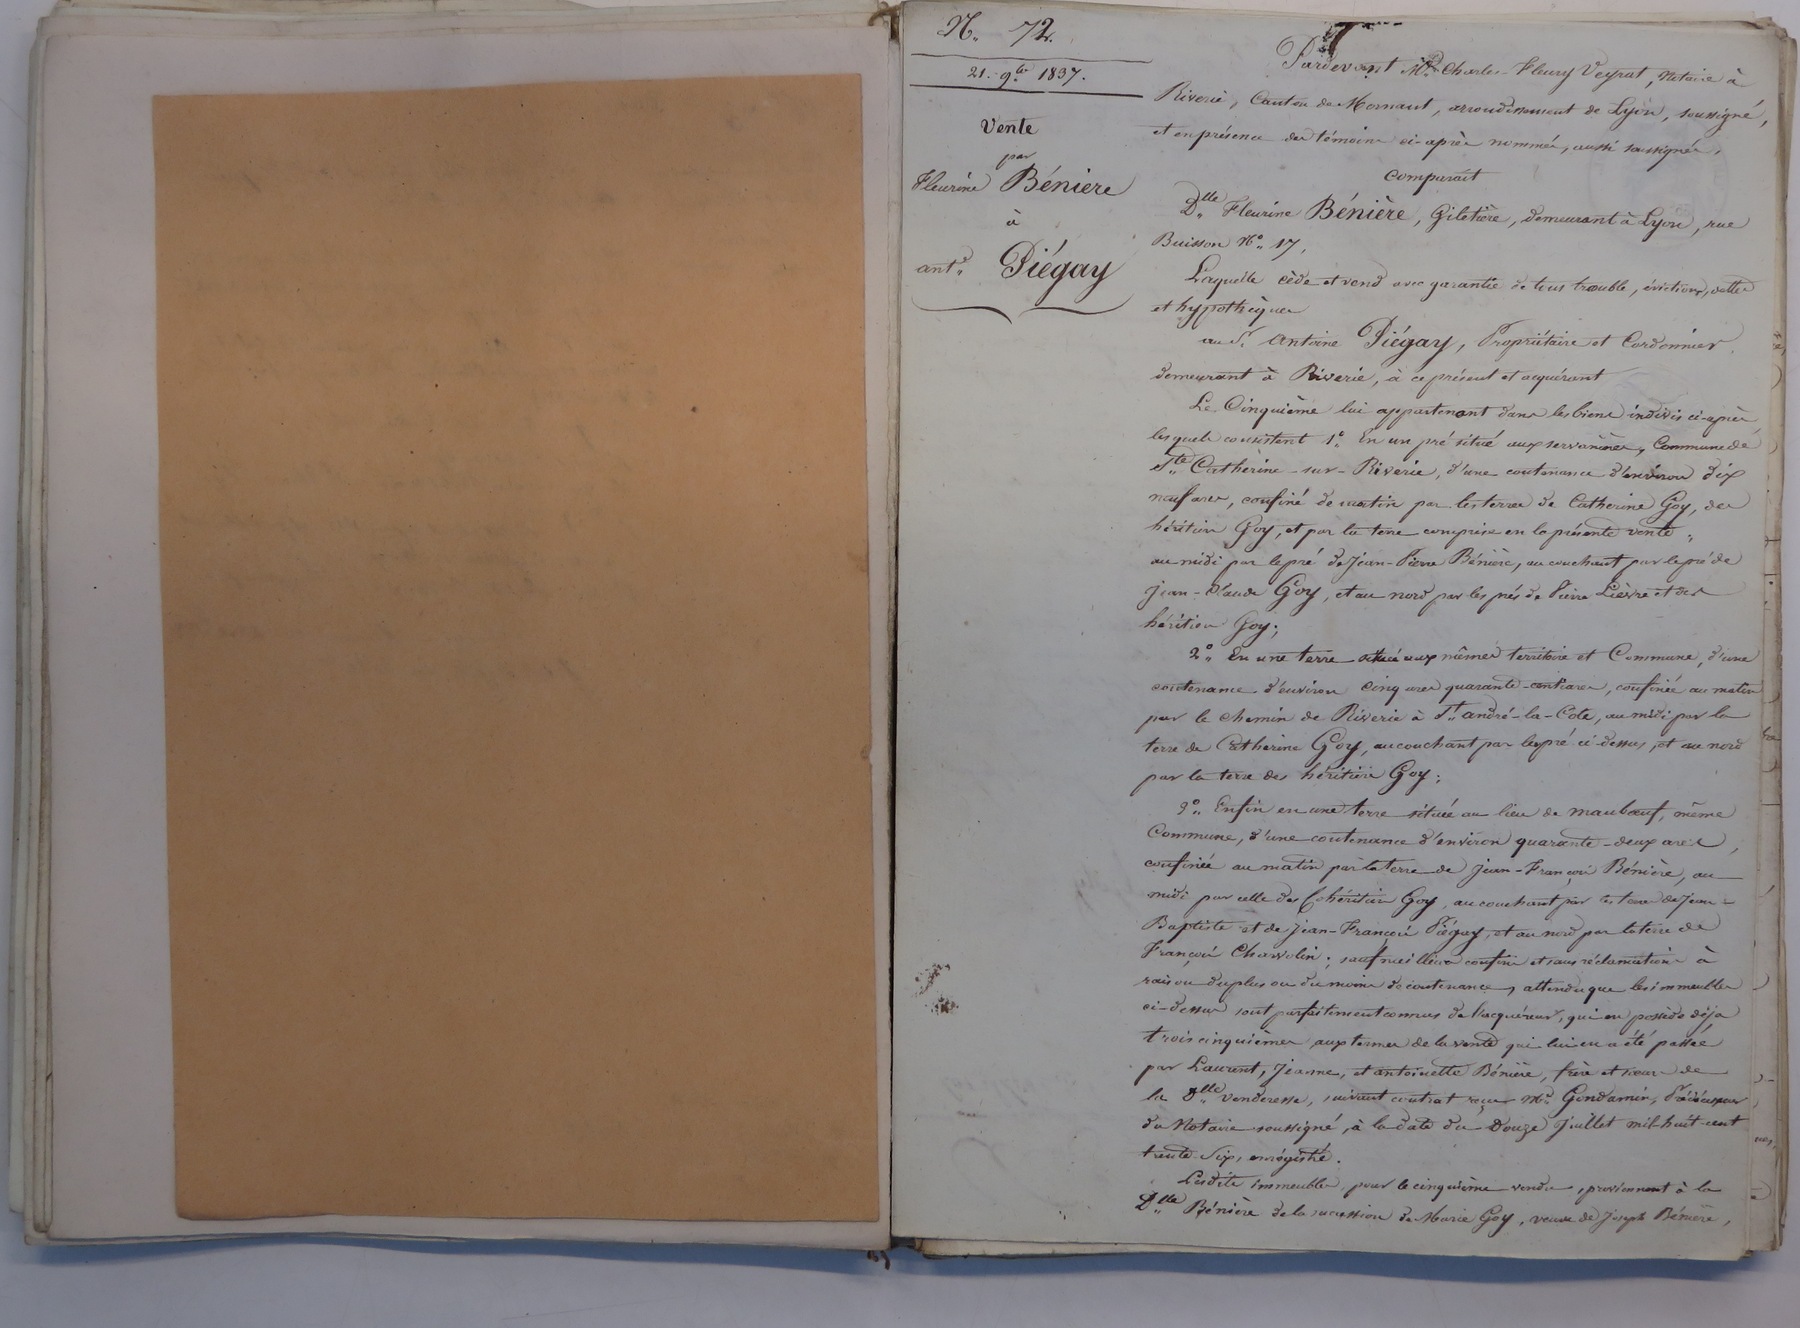 N.° 72.
21. 9.bre 1837.
Vente
par
Fleurine Bénière
à
ant.e Piégay
Pardevant M.e Charles-Fleury Veyrat, Notaire à
Riverie, Canton de Mornant, arrondissement de Lyon, soussigné,
et en présence des témoins ci-après nommés, aussi soussignés,
Comparait
D.lle Fleurine Bénière, Giletière, demeurant à Lyon, rue
Buisson N.° 17,
Laquelle cède et vend avec garantie de tous trouble, évictions, dettes
et hypothèques
au S.r Antoine Piégay, Propriétaire et Cordonnier
demeurant à Riverie, à ce présent et acquérant
Le Cinquième lui appartenant dans les biens indivis ci-après
lesquels consistent 1.° En un pré situé aux Commune de
S.te Catherine-sur-Riverie, d'une contenance d'environ dix
neuf ares, confiné de matin par les terres de Catherine Goy, des
héritiers Goy, et par la terre comprise en la présente vente,
au midi par le pré de Jean-Pierre Bénière, au couchant par le pré de
Jean-Claude Goy, et au nord par les prés de Pierre Lièvre et des
héritiers Goy;
2.° En une terre située aux mêmes territoire et Commune, d'une
contenance d'environ cinq ares quarante-centiares, confinée au matin
par le chemin de Riverie à S.t andré-la-Cote, au midi par la
terre de Catherine Goy, au couchant par le pré ci-dessus, et au nord
par la terre des héritiers Goy;
3.° Enfin en une terre située au lieu de maubœuf, même
Commune, d'une contenance d'environ quarante-deux ares,
confinée au matin par la terre de Jean-François Bénière, au
midi par celle des Cohéritiers Goy, au couchant par les terres de Jean-
Baptiste et de Jean-François Piégay, et au nord par la terre de
François Charvolin; sauf meilleurs confins et sans réclamation à
raison du plus ou du moins de contenance, attendu que les immeubles
ci-dessus sont parfaitement connus de l'acquéreur, qui en possède déja
trois cinquièmes aux termes de la vente qui lui en a été passée
par Laurent, Jeanne, et antoinette Bénière, frère et sœurs de
la D.lle venderesse, suivant contrat reçu M.e Gondamin, Prédécesseur
du Notaire soussigné, à la date du Douze Juillet mil-huit-cent
trente-Six, enrégistré.
Lesdits immeubles, pour le cinquième vendu, proviennent à la
D.lle Bénière de la succession de Marie Goy, veuve de Joseph Bénière,